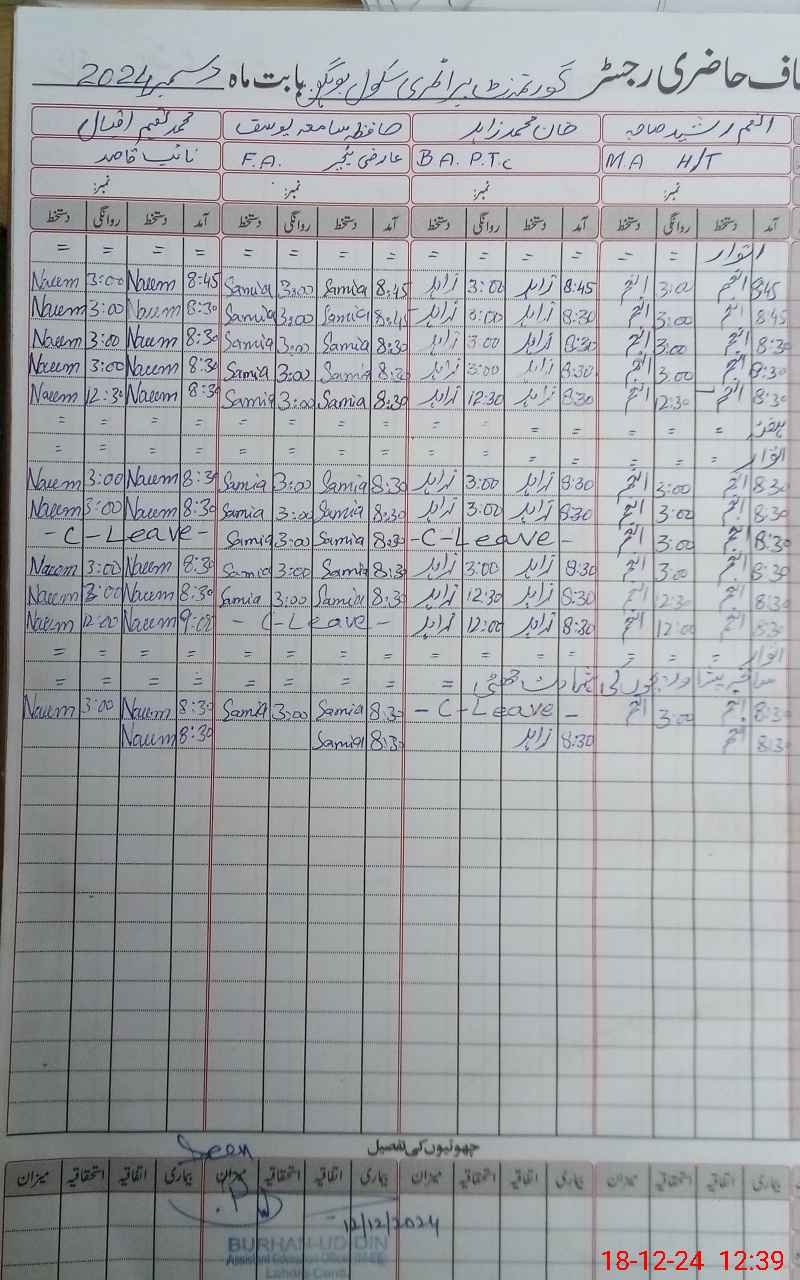 اف حاضری رجسٹر گورنمنٹ پرائمری سکول بابت ماہ دسمبر 2024
انعم رشید صاحبہ خان محمد زاہد حافظہ سامعہ یوسف محمد نعیم اقبال
M.A H/T B.A. P.T.C عارضی ٹیچر F.A. نائب قاصد
نمبر: نمبر: نمبر: نمبر:
آمد دستخط روانگی دستخط آمد دستخط روانگی دستخط آمد دستخط روانگی دستخط آمد دستخط روانگی دستخط
اتوار = = = = = = = = = = = = =
8:45 انعم 3:00 انعم 8:45 زاہد 3:00 زاہد 8:45 Samia 3:00 Samia 8:45 Naeem 3:00 Naeem
8:45 انعم 3:00 انعم 8:30 زاہد 3:00 زاہد 8:45 Samia 3:00 Samia 8:30 Naeem 3:00 Naeem
8:30 انعم 3:00 انعم 8:30 زاہد 3:00 زاہد 8:30 Samia 3:00 Samia 8:30 Naeem 3:00 Naeem
8:30 انعم 3:00 انعم 8:30 زاہد 3:00 زاہد 8:30 Samia 3:00 Samia 8:30 Naeem 3:00 Naeem
8:30 انعم 12:30 انعم 8:30 زاہد 12:30 زاہد 8:30 Samia 3:00 Samia 8:30 Naeem 12:30 Naeem
ہفتہ = = = = = = = = = = = = =
اتوار = = = = = = = = = = = = =
8:30 انعم 3:00 انعم 8:30 زاہد 3:00 زاہد 8:30 Samia 3:00 Samia 8:30 Naeem 3:00 Naeem
8:30 انعم 3:00 انعم 8:30 زاہد 3:00 زاہد 8:30 Samia 3:00 Samia 8:30 Naeem 3:00 Naeem
8:30 انعم 3:00 انعم - C-Leave - 8:30 Samia 3:00 Samia - C-Leave -
8:30 انعم 3:00 انعم 8:30 زاہد 3:00 زاہد 8:30 Samia 3:00 Samia 8:30 Naeem 3:00 Naeem
8:30 انعم 12:30 انعم 8:30 زاہد 12:30 زاہد 8:30 Samia 3:00 Samia 8:30 Naeem 3:00 Naeem
8:30 انعم 12:00 انعم 8:30 زاہد 12:00 زاہد - C-Leave - 9:00 Naeem 12:00 Naeem
اتوار = = = = = = = = = = = = =
کی چھٹی = = = = = = = = =
8:30 انعم 3:00 انعم - C-Leave - 8:30 Samia 3:00 Samia 8:30 Naeem 3:00 Naeem
8:30 انعم 8:30 زاہد 8:30 Samia 8:30 Naeem
چھوٹیوں کی تفصیل
Seen
بیماری اتفاقیہ استحقاقیہ میزان بیماری اتفاقیہ استحقاقیہ میزان بیماری اتفاقیہ استحقاقیہ میزان بیماری اتفاقیہ استحقاقیہ میزان
12/12/2024
BURHAN-UD-DIN
Assistant Education Officer
Lahore Cantt.
18-12-24 12:39